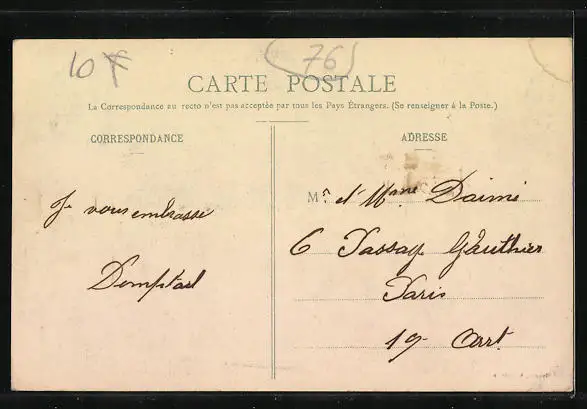 10F
76
CARTE POSTALE
La Correspondance au recto n'est pas acceptée par tous les Pays Étrangers. (Se renseigner à la Poste.)
CORRESPONDANCE
ADRESSE
Je vous embrasse
M. et Mme Daimé
6 Passage Gauthier
Paris
19e Arrt